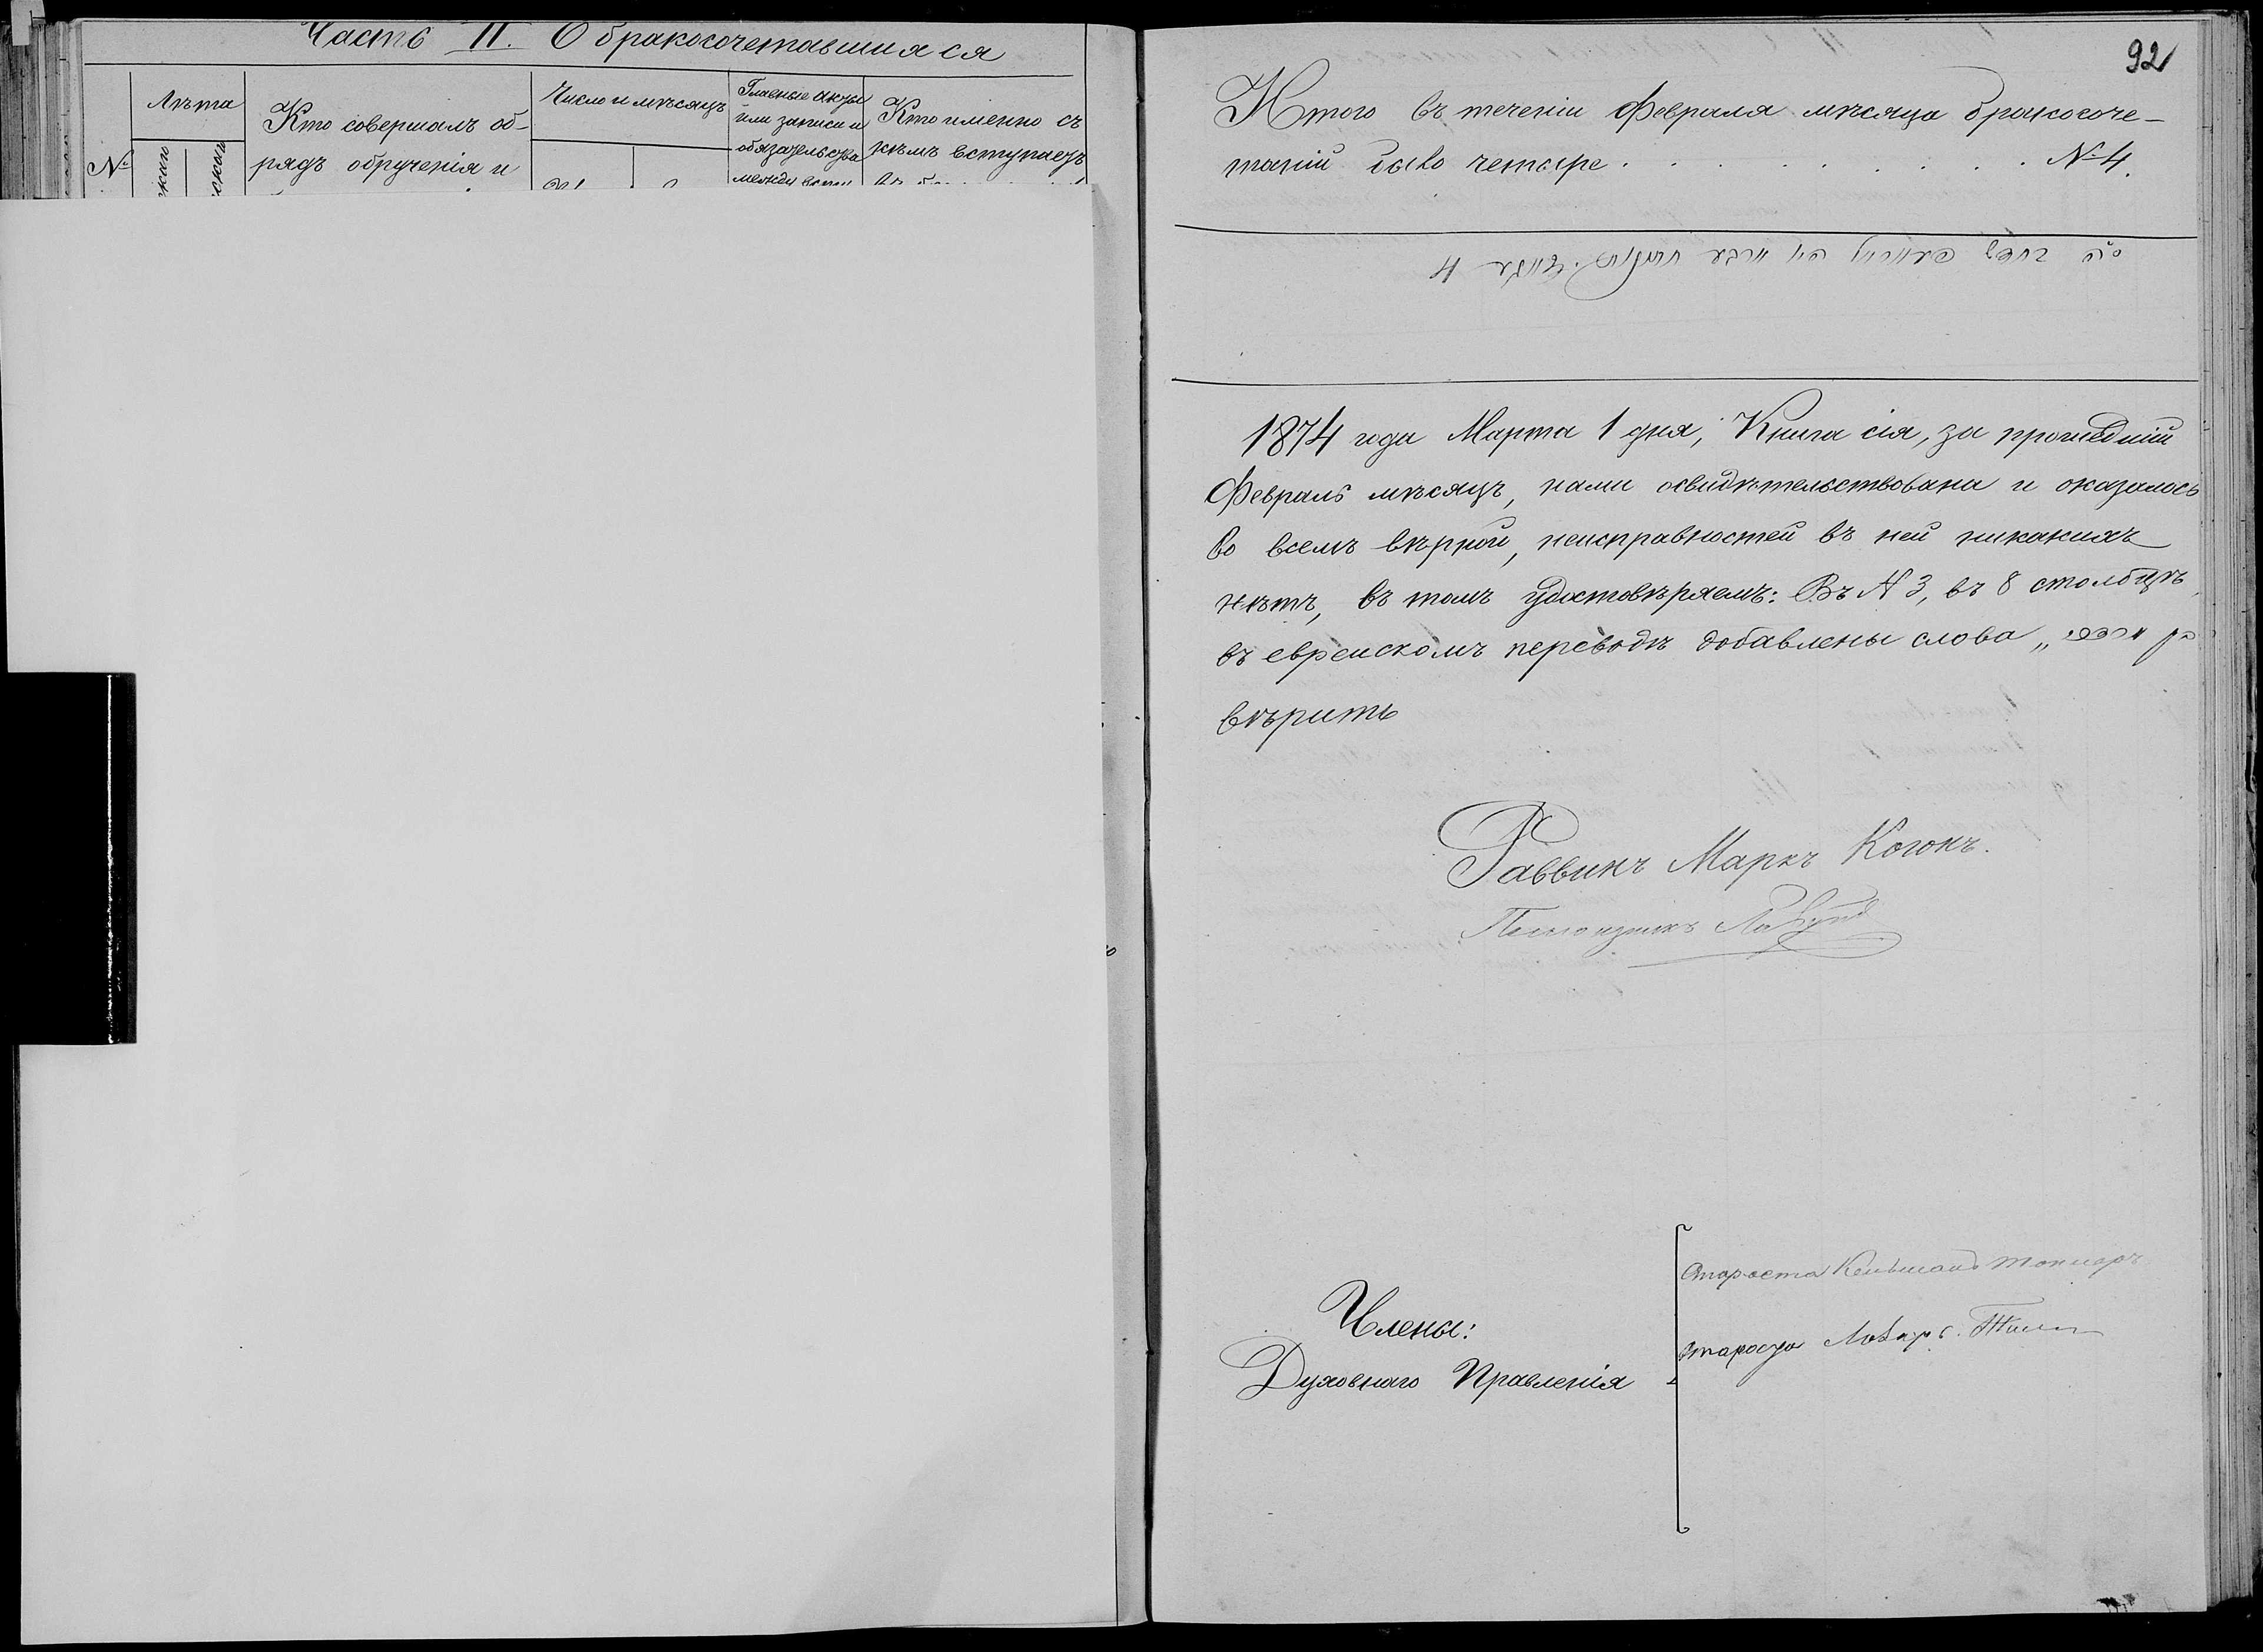 Часть II. О бракосочетавшихся
№
Лѣта
Кто совершалъ об-
рядъ обрученія и
Число и мѣсяцъ
Главные акты
или записи и
обязательства
между
Кто именно съ
кѣмъ вступаетъ
92
Итого въ теченіи Февраля мѣсяца бракосоче-
таній было четыре . . . . . . . . № 4.
4
1874 года Марта 1 дня, Книга сія, за прошедшій
Февраль мѣсяцъ, нами освидѣтельствована и оказалось
во всемъ вѣрной, неисправностей въ ней никакихъ
нѣтъ, въ томъ удостовѣряемъ: Въ № 3, въ 8 столбцѣ,
въ еврейскомъ переводѣ добавлены слова „
вѣрить
Раввинъ Маркъ Когонъ.
Члены:
Духовнаго Правленія
Староста
Староста